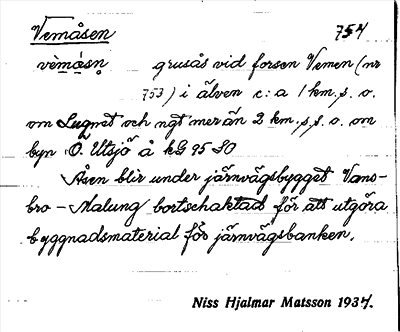 Vemåsen 754
vèmå̀sn̥ grusås vid forsen Vemen (nr
753) i älven c:a 1 km. s. o.
om Lugnet och ngt mer än 2 km. s, s. o. om
byn Ö. Utsjö å kB 95 SO
Åsen blir under järnvägsbygget Vans-
bro - Malung bortschaktad för att utgöra
byggnadsmaterial för järnvägsbanken.
Niss Hjalmar Matsson 1937.